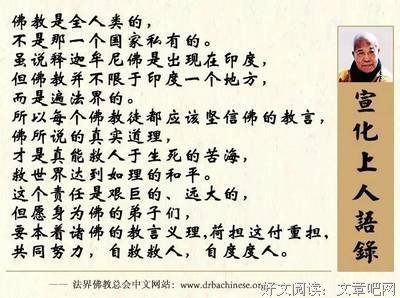 佛教是全人类的，
不是那一个国家私有的。
虽说释迦牟尼佛是出现在印度，
但佛教并不限于印度一个地方，
而是遍法界的。
所以每个佛教徒都应该坚信佛的教言，
佛所说的真实道理，
才是真能救人于生死的苦海，
救世界达到如理的和平。
这个责任是艰巨的、远大的，
但愿身为佛的弟子们，
要本着诸佛的教言义理,荷担这付重担，
共同努力，自救救人，自度度人。
宣化上人語錄
—— 法界佛教总会中文网站：www.drbachinese.org
好文阅读：文章吧网